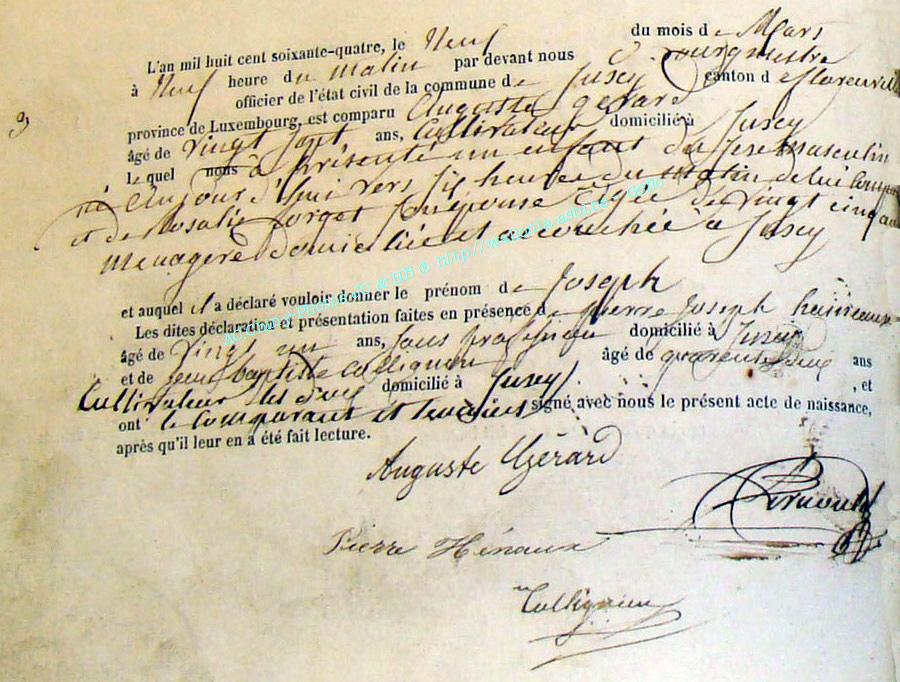 L'an mil huit cent soixante-quatre, le Neuf du mois de Mars
à Neuf heure du matin par devant nous Bourgmestre
officier de l'état civil de la commune de Jusey canton de florenville
province de Luxembourg, est comparu Auguste gerard
âgé de vingt sept ans, Cultivateur domicilié à Jusey
9
lequel nous a présenté un enfant du sexe masculin
né Aujourd'hui vers six heures du matin de lui Comparant
et de Rosalie forget son épouse Agée de vingt cinq ans
menagère domiciliée et accouchée à Jusey
et auquel il a déclaré vouloir donner le prénom de Joseph
Les dites déclaration et présentation faites en présence de pierre Joseph
âgé de vingt un ans, sans profession domicilié à Jusey
et de Jean baptiste Collignon âgé de quarente ans
Cultivateur les deux domicilié à Jusey , et
ont le Comparant et temoins signé avec nous le présent acte de naissance,
après qu'il leur en a été fait lecture.
Auguste Gérard
Pierre Hénaux
Collignon